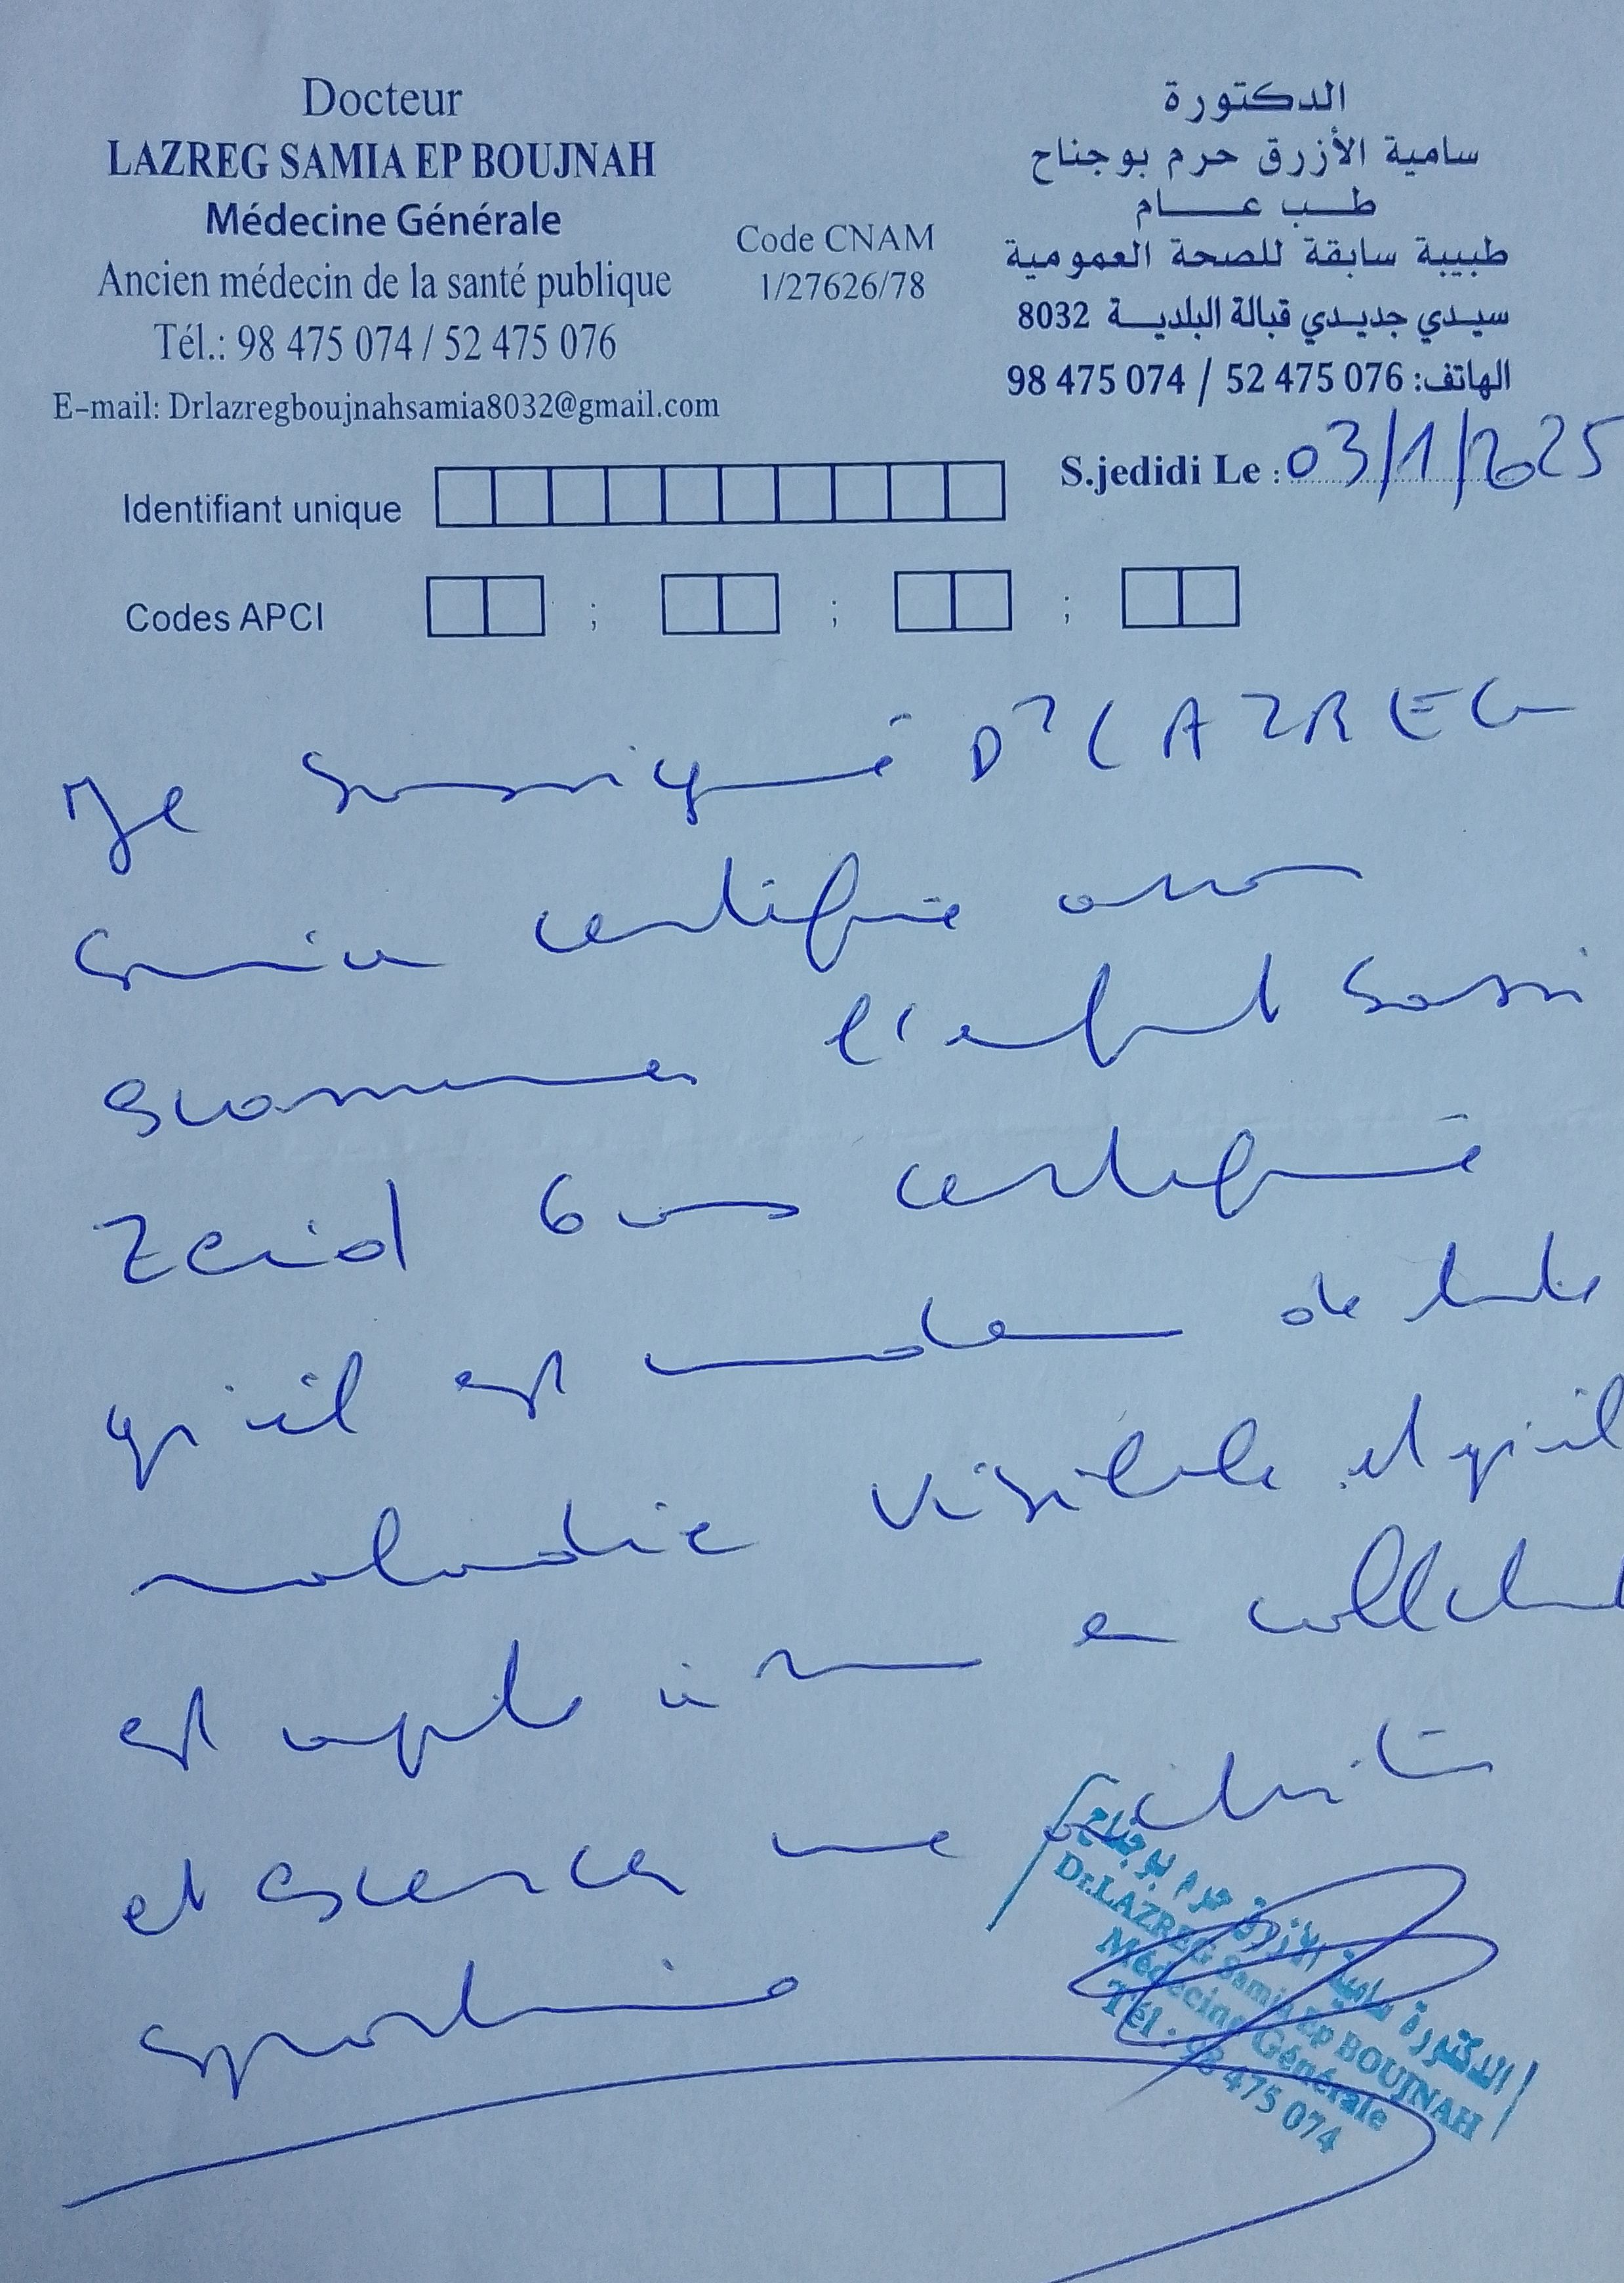 Docteur
LAZREG SAMIA EP BOUJNAH
Médecine Générale
Ancien médecin de la santé publique
Tél.: 98 475 074 / 52 475 076
E-mail: Drlazregboujnahsamia8032@gmail.com
Code CNAM
1/27626/78
الدكتورة
سامية الأزرق حرم بوجناح
طب عام
طبيبة سابقة للصحة العمومية
سيدي جديدي قبالة البلدية 8032
الهاتف: 98 475 074 / 52 475 076
S.jedidi Le : 03/1/2025
Identifiant unique
Codes APCI ; ; ;
Je soussigné Dr LAZREG
Samia certifie avoir
examiné l'enfant Sassi
Zeid 6 ans certifie
qu'il est indemne de toute
maladie visible et qu'il
est apte à vivre en collectivité
et exercer une activité
sportive
الدكتورة سامية الأزرق حرم بوجناح
Dr.LAZREG Samia Ep BOUJNAH
Médecine Générale
Tél : 98 475 074